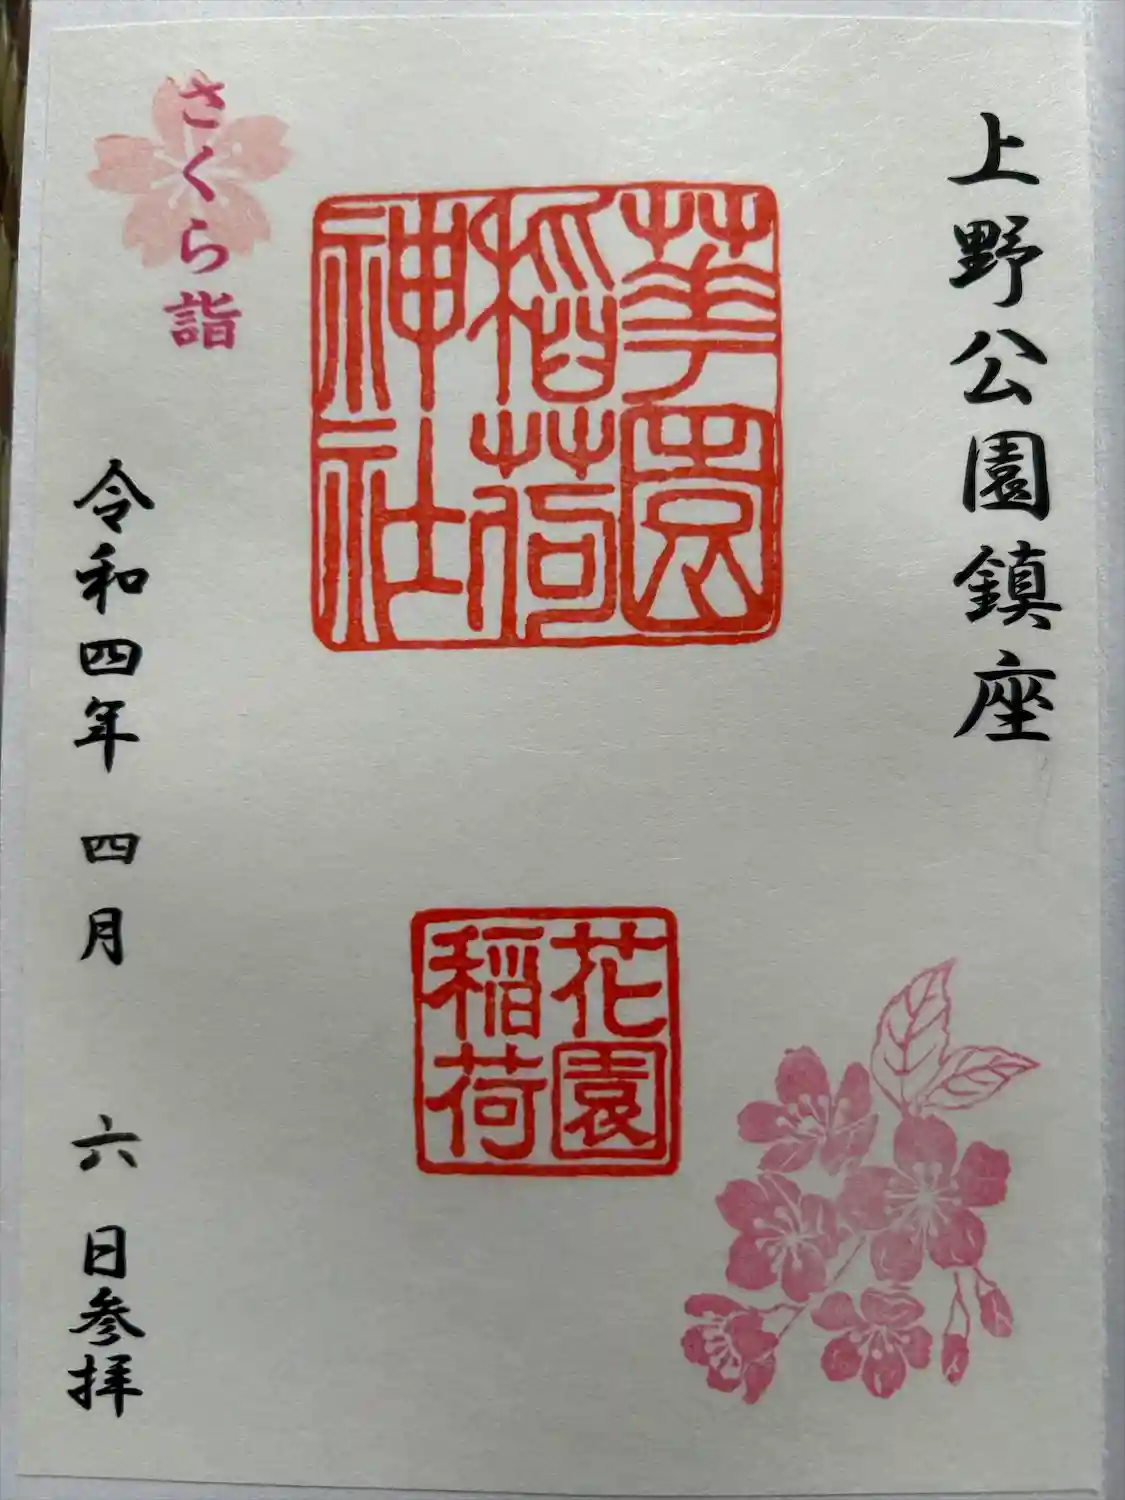 上野公園鎮座
華園
稲荷
神社
花園
稲荷
さくら詣
令和四年 四月 六日参拝